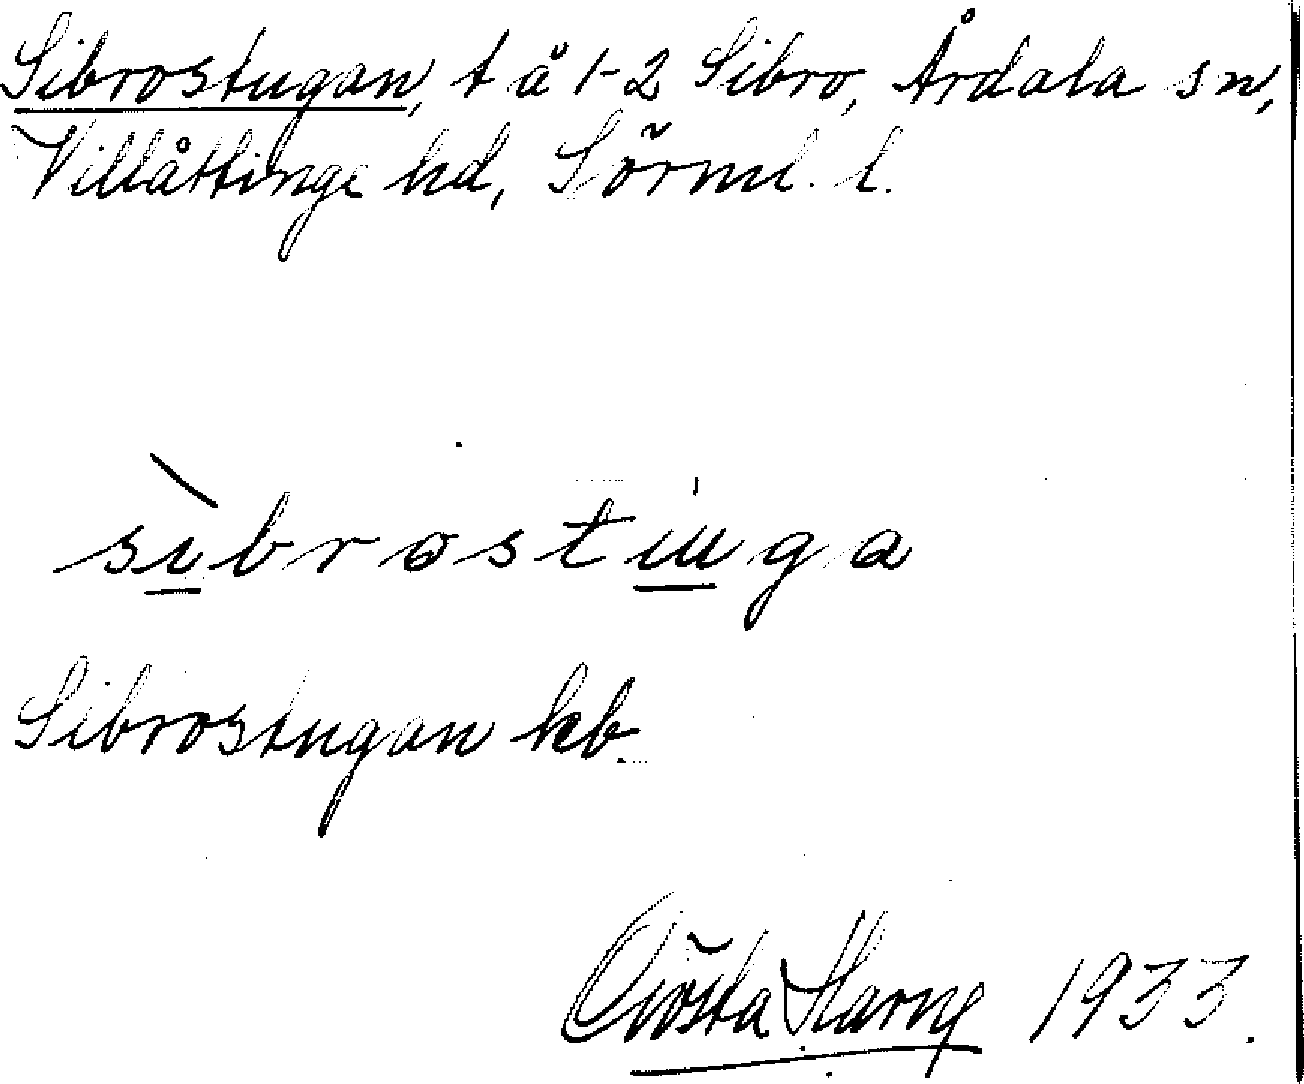 Sibrostugan, t å 1-2 Sibro, Årdala sn,
Villåttinge hd, Sörml. l.
sìbrostuga
Sibrostugan kb.
Gösta 1933.